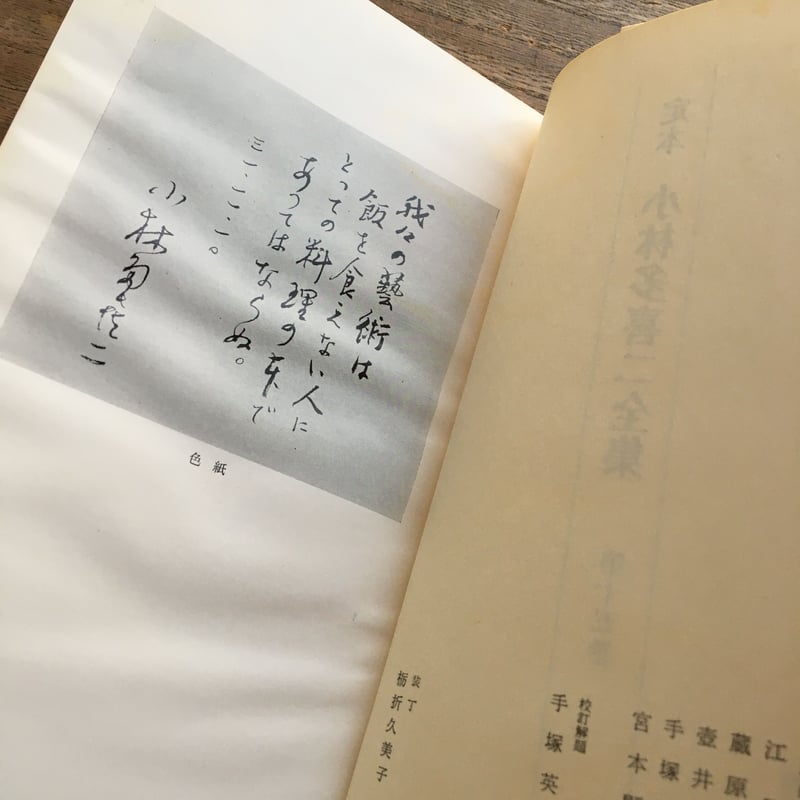 我々の藝術は
飯を食えない人に
とっての料理の本で
あってはならぬ。
三一・二・一。
小林多喜二
色紙
定本 小林多喜二全集
江
蔵原
壺井
手塚
宮本
校訂解題
手塚英
装丁
栃折久美子